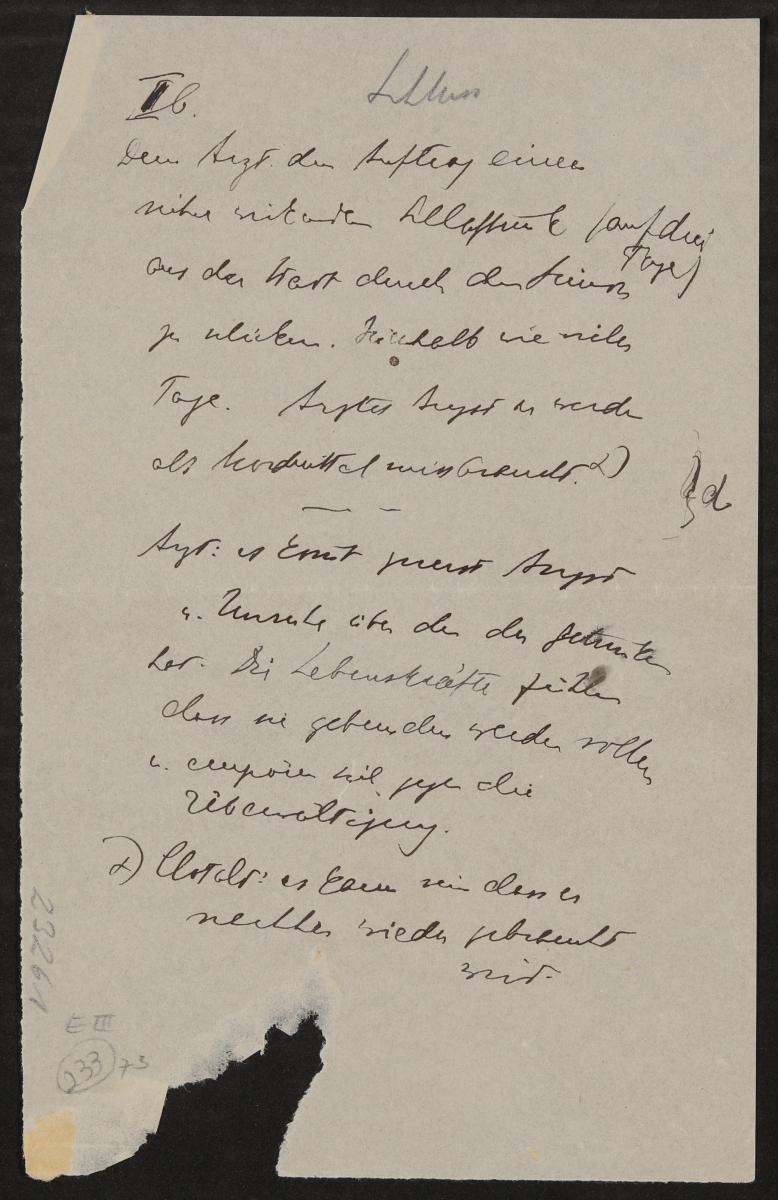 Schluss
II b.
Dem Arzt den Auftrag einen
sicher wirkenden Schlaftrunk (auf drei
Tage)
aus der Stadt durch den
zu schicken. Innerhalb wie vieler
Tage. Arztes Angst er werde
als Mordmittel missbraucht. 2)
Arzt: es kommt zuerst Angst
u. Unruhe über den der getrunken
hat. Die Lebenskräfte fühlen
dass sie gebunden werden sollen
u. empören sich gegen die
Überwältigung.
2) es kann sein dass es
nachher wieder gebraucht
wird.
23261
E III
233 73